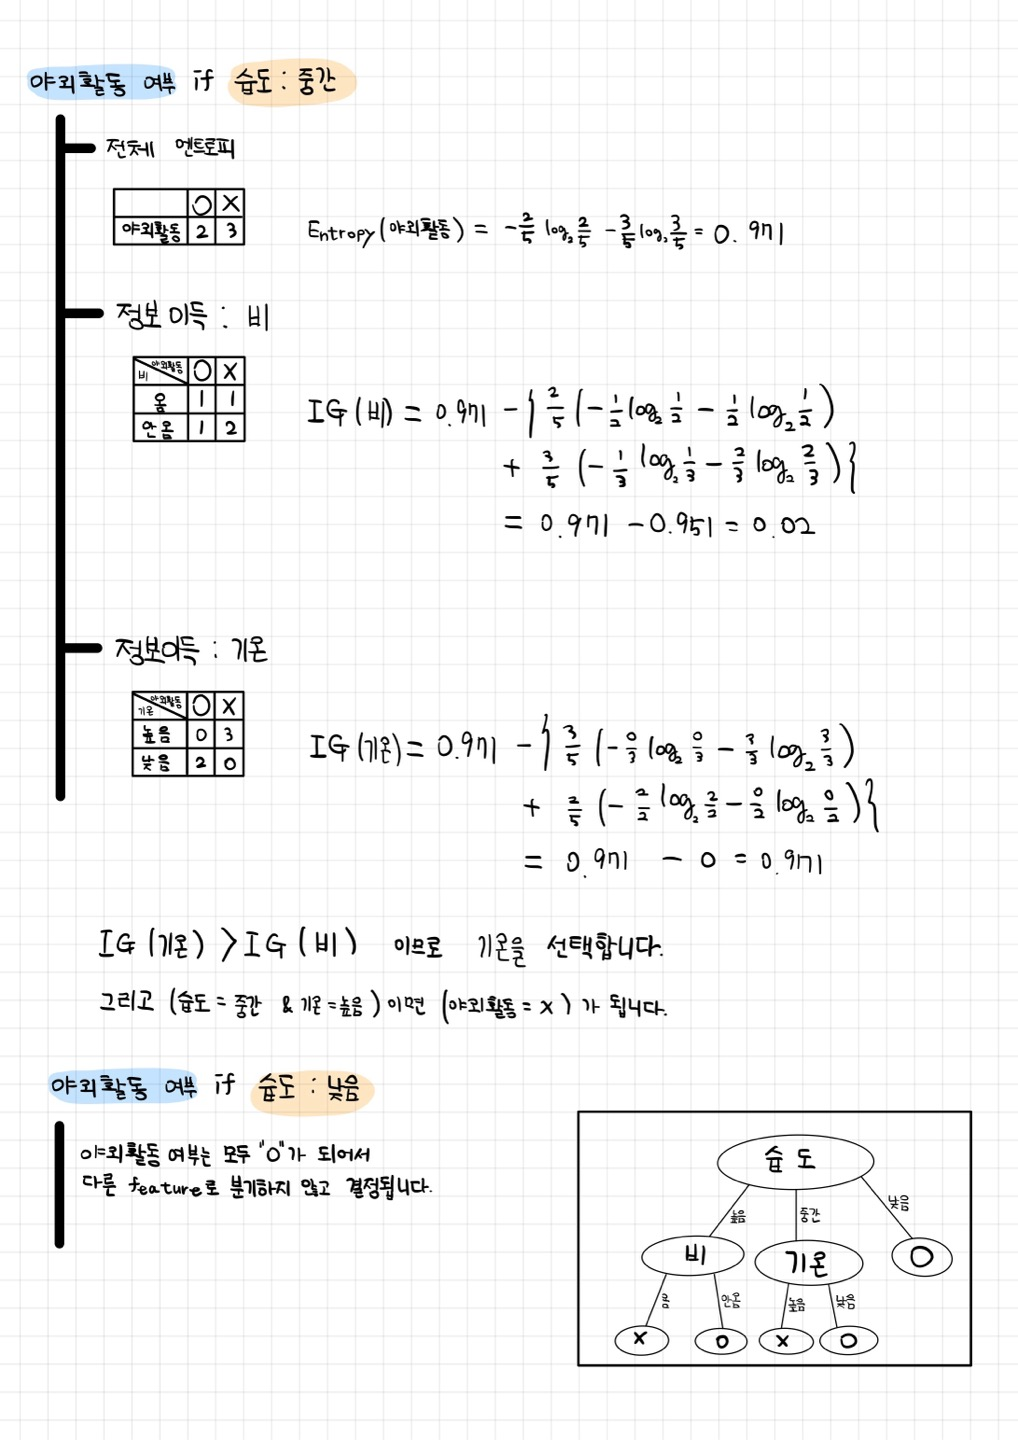 야외활동 여부 if 습도 : 중간
전체 엔트로피
O X
야외활동 2 3
Entropy(야외활동) = -2/5 log₂ 2/5 - 3/5 log₂ 3/5 = 0.971
정보 이득 : 비
비 야외활동 O X
옴 1 1
안옴 1 2
IG(비) = 0.971 - { 2/5 (- 1/2 log₂ 1/2 - 1/2 log₂ 1/2)
+ 3/5 (- 1/3 log₂ 1/3 - 2/3 log₂ 2/3) }
= 0.971 - 0.951 = 0.02
정보이득 : 기온
기온 야외활동 O X
높음 0 3
낮음 2 0
IG(기온) = 0.971 - { 3/5 (- 0/3 log₂ 0/3 - 3/3 log₂ 3/3)
+ 2/5 (- 2/2 log₂ 2/2 - 0/2 log₂ 0/2) }
= 0.971 - 0 = 0.971
IG(기온) > IG(비) 이므로 기온을 선택합니다.
그리고 (습도 = 중간 & 기온 = 높음) 이면 (야외활동 = X) 가 됩니다.
야외활동 여부 if 습도 : 낮음
야외활동 여부는 모두 "O"가 되어서
다른 feature로 분기하지 않고 결정됩니다.
습도
높음 중간 낮음
비 기온 O
옴 안옴 높음 낮음
X O X O